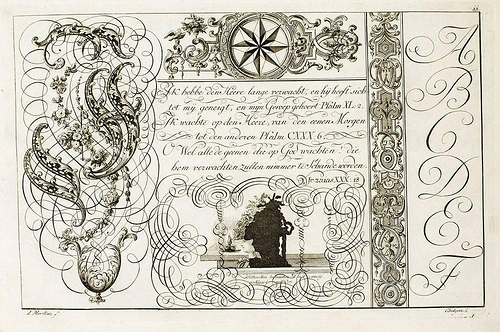 IK hebbe den Heere lange verwacht, en hy heeft sich
tot my geneigt, en mijn Geroep gehoort Psalm XL: 2.
Ik wachte op den Heere, van den eenen Morgen
tot den anderen Psalm CXXX 6.
Wel alle de geenen die op God wachten! die
hem verwachten zullen nimmer te Schande worden.
XXX: 18
A
B
C
D
E
F